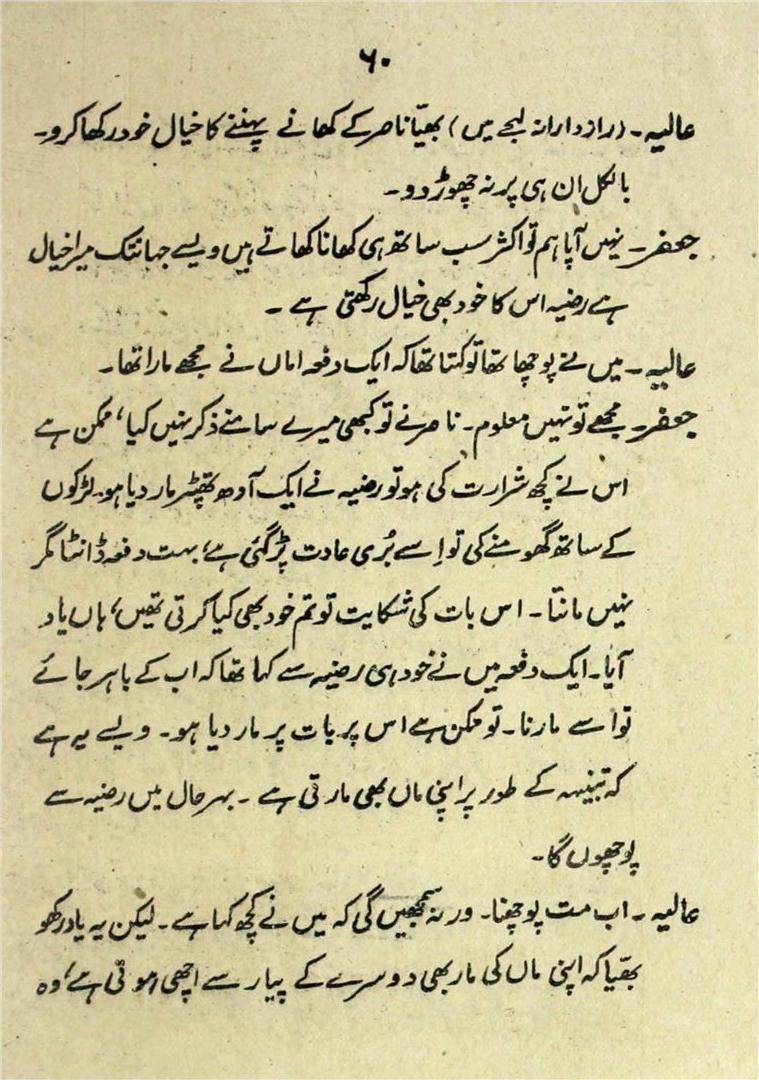 ۶۰
عالیہ۔ (رازدارانہ لہجے میں) بھیّا ناصر کے کھانے پہننے کا خیال خود رکھا کرو۔
بالکل ان ہی پر نہ چھوڑ دو۔
جعفر۔ نہیں آپا ہم تو اکثر سب ساتھ ہی کھانا کھاتے ہیں ویسے جہانتک میرا خیال
ہے رضیہ اس کا خود بھی خیال رکھتی ہے۔
عالیہ۔ میں نے پوچھا تھا تو کہتا تھا کہ ایک دفعہ اماں نے مجھے مارا تھا۔
جعفر۔ مجھے تو نہیں معلوم۔ ناصر نے تو کبھی میرے سامنے ذکر نہیں کیا، ممکن ہے
اس نے کچھ شرارت کی ہو تو رضیہ نے ایک آدھ تھپڑ مار دیا ہو۔ لڑکوں
کے ساتھ گھومنے کی تو اِسے بُری عادت پڑ گئی ہے، بہت دفعہ ڈانٹا مگر
نہیں مانتا۔ اس بات کی شکایت تو تم خود بھی کیا کرتی تھیں، ہاں یاد
آیا۔ ایک دفعہ میں نے خود ہی رضیہ سے کہا تھا کہ اب کے باہر جائے
تو اسے مارنا۔ تو ممکن ہے اس پر بات پر مار دیا ہو۔ ویسے یہ ہے
کہ تبنیہہ کے طور پر اپنی ماں بھی مارتی ہے۔ بہر حال میں رضیہ سے
پوچھوں گا۔
عالیہ۔ اب مت پوچھنا۔ ورنہ سمجھیں گی کہ میں نے کچھ کہا ہے۔ لیکن یہ یاد رکھو
بھیّا کہ اپنی ماں کی مار بھی دوسرے کے پیار سے اچھی ہوتی ہے، وہ